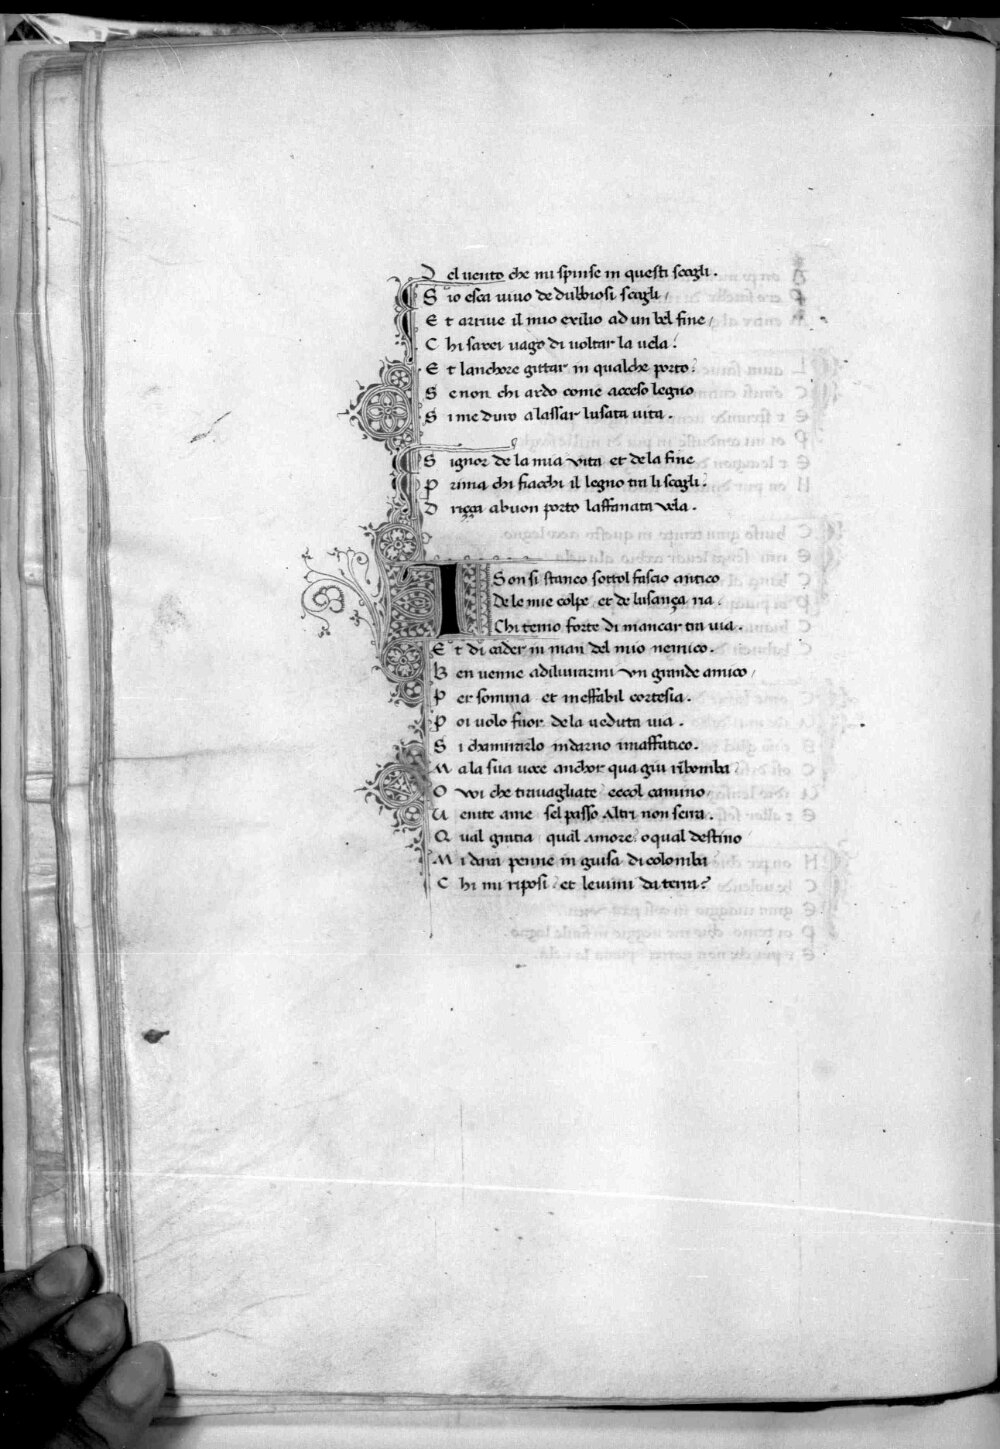 D el uento che mi spinse in questi scogli .
S io esca uiuo de dubbiosi scogli /
E t arriue il mio exilio ad un bel fine /
C hi sarei uago di uoltar la uela :
E t lanchore gittar in qualche porto :
S e non chi ardo come acceso legno
S i me duro a lassar lusata uita .
S ignor de la mia vita et de la fine
P rima chi fiacchi il legno tra li scogli :
D riçça a buon porto laffanata vela .
I Son si stanco sottol fascio antico
De le mie colpe et de lusança ria .
Chi temo forte di mancar tra uia .
E t di cader in man del mio nemico .
B en uenne a diliurarmi vn grande amico /
P er somma et ineffabil cortesia .
P oi uolo fuor de la ueduta mia .
S i chamirarlo indarno maffatico .
M a la sua uoce anchor qua giu ribomba :
O voi che trauagliate eccol camino
U enite a me sel passo Altri non serra .
Q ual gratia qual amore o qual destino
M i dara penne in guisa di colomba
C hi mi riposi et leuimi da terra ?